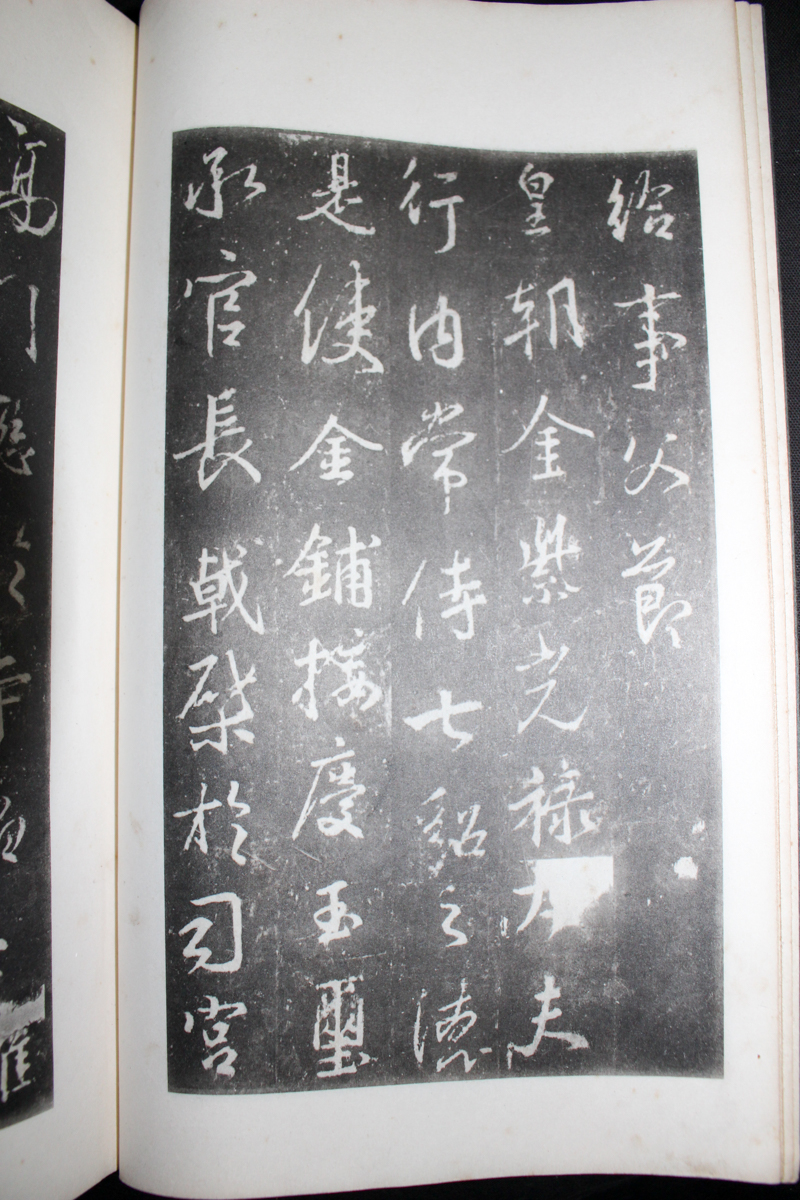 給事父節
皇朝金紫光祿大夫
行內常侍七貂之德
是使金鋪接慶玉璽
承官長戟棨於司宮
高門